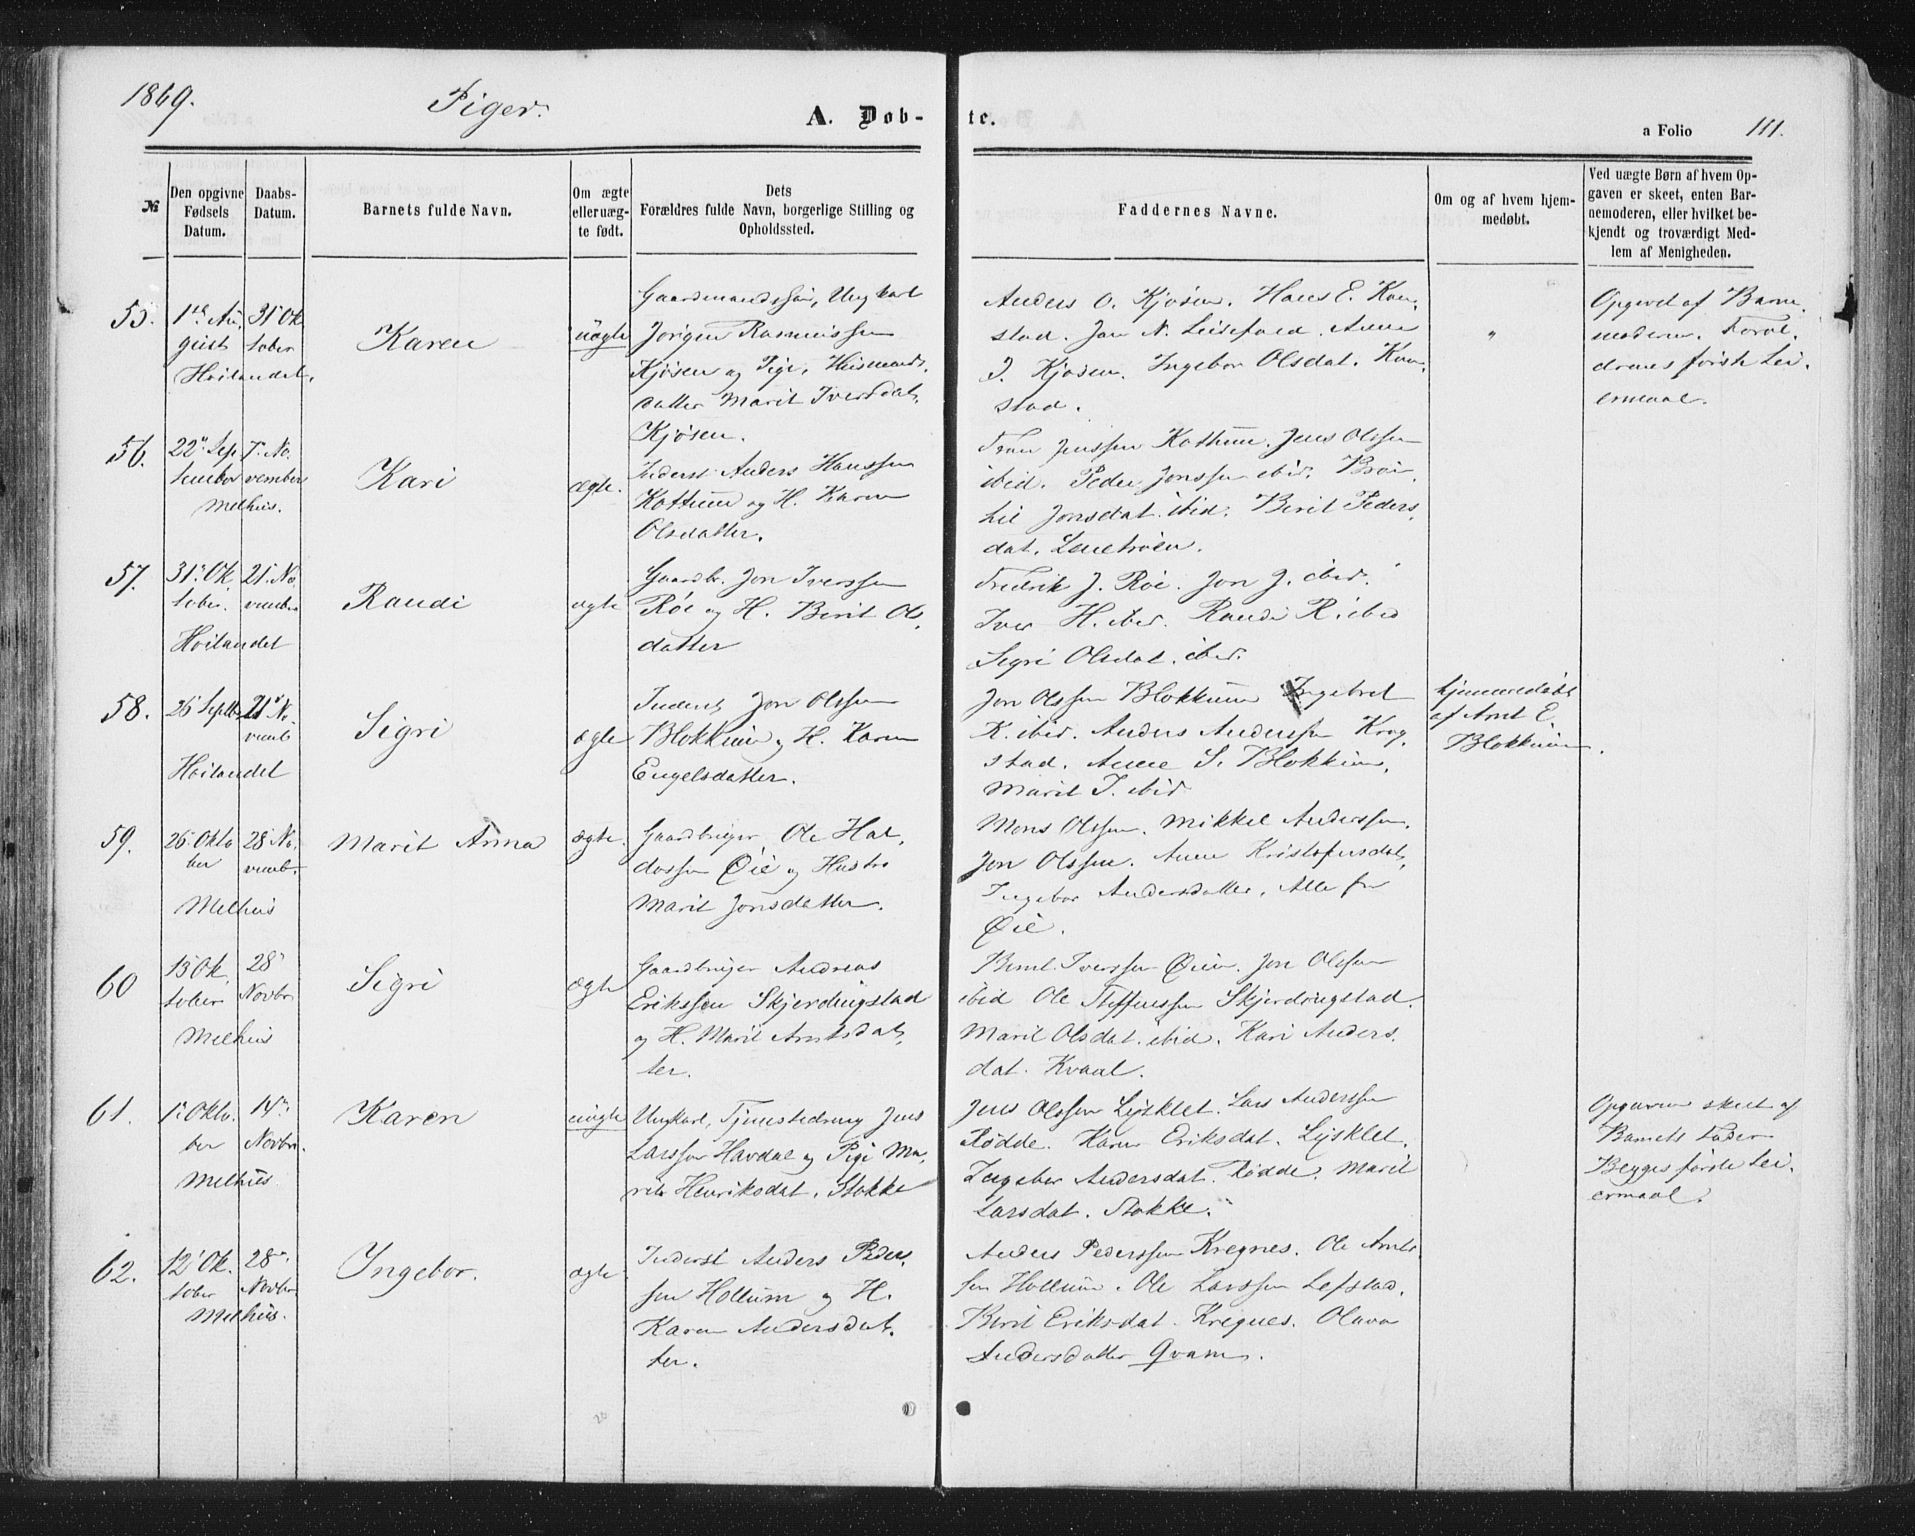 1869. Piger. A. Døb- te. a Folio 111.
№
Den opgivne Fødsels Datum.
Daabs-Datum.
Barnets fulde Navn.
Om ægte eller uæg-te født.
Dets Forældres fulde Navn, borgerlige Stilling og Opholdssted.
Faddernes Navne.
Om og af hvem hjem-medøbt.
Ved uægte Børn af hvem Op-gaven er skeet, enten Bar-nemoderen, eller hvilket be-kjendt og troværdigt Med-lem af Menigheden.
55.
1ste Au,
gust
Høilandet,
31 Ok
tober
Karen
uægte
Gaardmandssøn, Ungkarl
Jørgen Rasmussen
Kjøsen og Pige, Husmands,
datter Marit Iversdat,
Kjøsen.
Anders O. Kjøsen. Hans E. Kam,
stad. Jon N. Leifald. Anne
J. Kjøsen. Ingebor Olsdat. Kam,
stad.
"
Opgivet af Barne
moderen. Foræl,
drenes første Lei,
ermaal.
56.
22 Sep
tember
Melhus.
7 No.
vember
Kari
ægte.
Inderst Anders Hanssen
Kattum og H. Karen
Olsdatter.
Jenssen Kattum. Jens Olssen
ibid. Peder Jonssen ibid.
Jonsdat. ibid. Berit Peders,
dat.
57.
31 Ok
tober.
Høilandet
21 No
vember
Randi
ægte
Gaardbr. Jon Iverssen
Røe og H. Berit Ols,
datter
Fredrik J. Røe. Jon J. ibid.
Iver H. ibid. Randi R. ibid
Sigri Olsdat. ibid.
58.
26 Septbr
Høilandet
21 No.
vemb
Sigri
ægte
Inderst Jon Olssen
Blokkum og H. Karen
Engelsdatter.
Jon Olssen Blokkum Ingebret
K. ibid. Anders Anderssen Krog,
stad. Anne S. Blokkum,
Marit J. ibid
hjemmedøbt
af Arnt E.
Blokkum.
59.
26 Okto
ber
Melhus
28 No,
vemb.
Marit Anna
ægte.
Gaardbruger Ole Hal,
dossen Øie og Hustru
Marit Jonsdatter.
Mons Olssen. Mikkel Anderssen,
Jon Olssen. Anne Kristofersdat,
Ingebor Andersdatter, Alle fra
Øie.
60
13 Ok,
tober
Melhus
28
Novbr
Sigri
ægte
Gaardbruger Andreas
Erikssen Skjerdingstad
og H. Marit Arntsdat,
ter.
Bernt Iverssen Øien. Jon Olssen
ibid Ole Steffenssen Skjerdingstad.
Marit Olsdat. ibid. Kari Anders,
dat. Kvaal.
61.
1 Okto,
ber
Melhus
14
Novbr.
Karen
uægte
Ungkarl, Tjenestedreng Jens
Larssen Havdal og Pige Ma,
rit Henriksdat. Stokke
Jens Olssen Lysklet. Lars Anderssen
Rødde. Karen Eriksdat. Lysklet.
Ingebor Andersdat. Rødde. Marit
Larsdat. Stokke.
Opgaven skeet af
Barnets Fader
Begges første Lei,
ermaal.
62.
12 Ok.
tober
Melhus.
28
Novbr
Ingebor.
ægte
Inderst Anders Peders,
sen Hollum og H.
Karen Andersdat,
ter.
Anders Pederssen Kregnes. Ole Arnts
sen Hollum. Ole Larssen Lefstad.
Berit Eriksdat. Kregnes. Olava
Andersdatter Qvam.